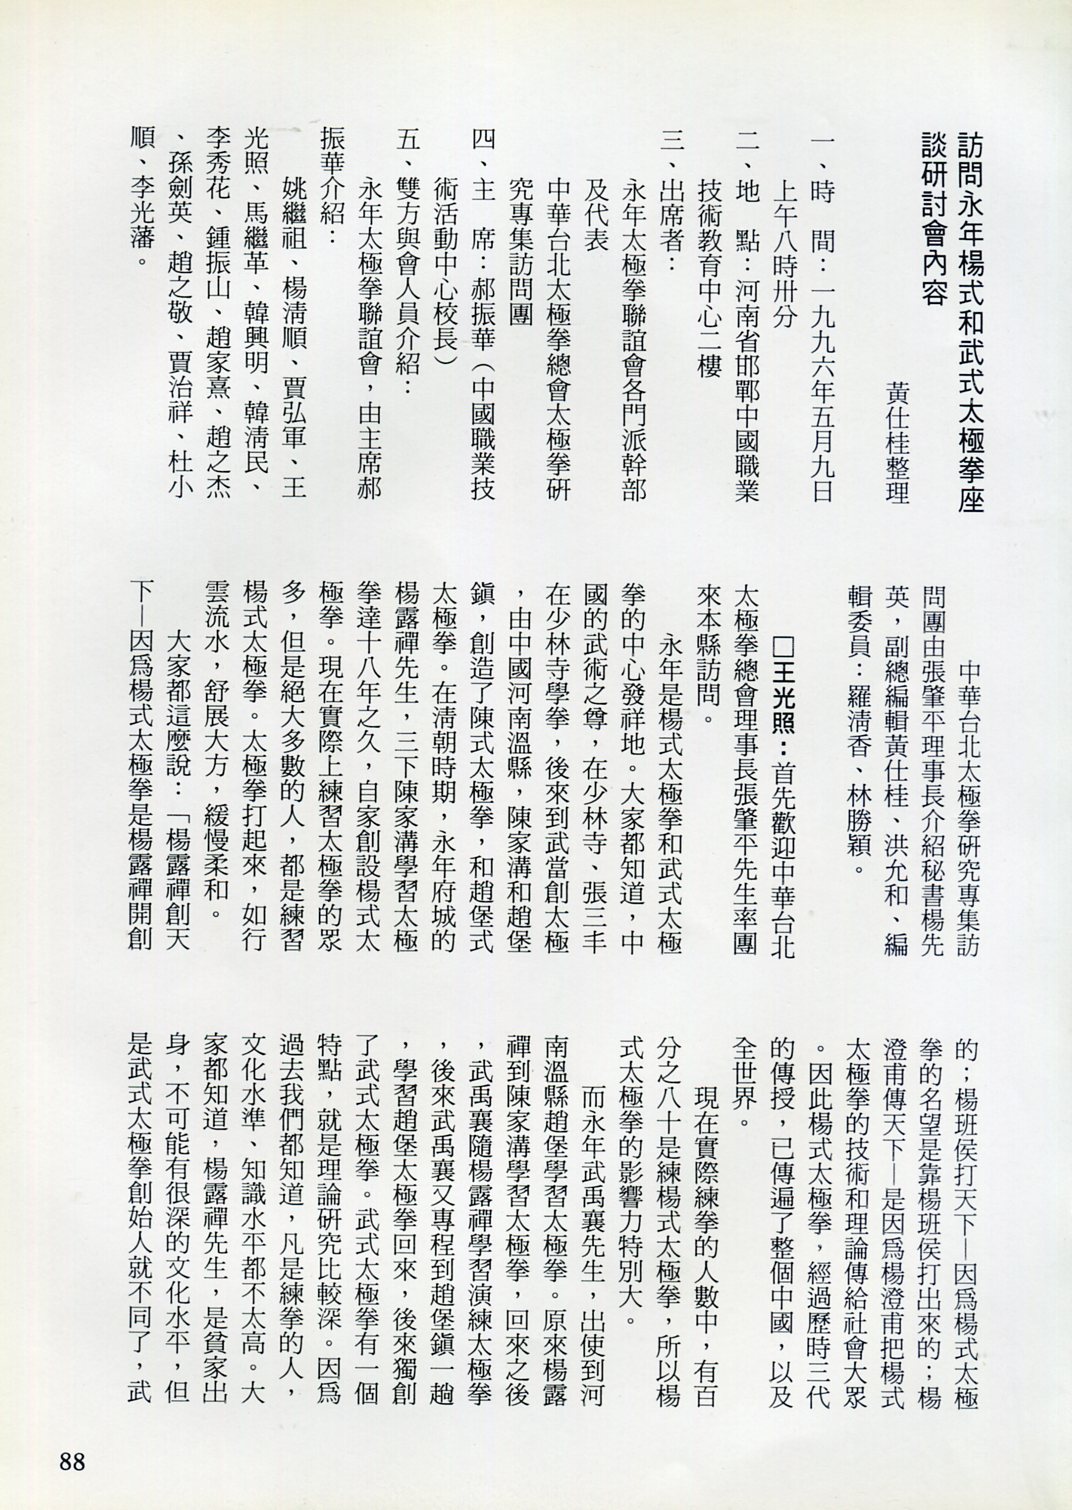 訪問永年楊式和武式太極拳座
談研討會內容
黃仕桂整理
一、時　間：一九九六年五月九日
上午八時卅分
二、地　點：河南省邯鄲中國職業
技術教育中心二樓
三、出席者：
永年太極拳聯誼會各門派幹部
及代表
中華台北太極拳總會太極拳研
究專集訪問團
四、主　席：郝振華（中國職業技
術活動中心校長）
五、雙方與會人員介紹：
永年太極拳聯誼會，由主席郝
振華介紹：
姚繼祖、楊淸順、賈弘軍、王
光照、馬繼革、韓興明、韓淸民、
李秀花、鍾振山、趙家熹、趙之杰
、孫劍英、趙之敬、賈治祥、杜小
順、李光藩。
中華台北太極拳研究專集訪
問團由張肇平理事長介紹秘書楊先
英，副總編輯黃仕桂、洪允和、編
輯委員：羅淸香、林勝穎。
□王光照：首先歡迎中華台北
太極拳總會理事長張肇平先生率團
來本縣訪問。
永年是楊式太極拳和武式太極
拳的中心發祥地。大家都知道，中
國的武術之尊，在少林寺、張三丰
在少林寺學拳，後來到武當創太極
，由中國河南溫縣，陳家溝和趙堡
鎮，創造了陳式太極拳，和趙堡式
太極拳。在淸朝時期，永年府城的
楊露禪先生，三下陳家溝學習太極
拳達十八年之久，自家創設楊式太
極拳。現在實際上練習太極拳的眾
多，但是絕大多數的人，都是練習
楊式太極拳。太極拳打起來，如行
雲流水，舒展大方，緩慢柔和。
大家都這麼說：「楊露禪創天
下—因爲楊式太極拳是楊露禪開創
的；楊班侯打天下—因爲楊式太極
拳的名望是靠楊班侯打出來的；楊
澄甫傳天下—是因爲楊澄甫把楊式
太極拳的技術和理論傳給社會大眾
。因此楊式太極拳，經過歷時三代
的傳授，已傳遍了整個中國，以及
全世界。
現在實際練拳的人數中，有百
分之八十是練楊式太極拳，所以楊
式太極拳的影響力特別大。
而永年武禹襄先生，出使到河
南溫縣趙堡學習太極拳。原來楊露
禪到陳家溝學習太極拳，回來之後
，武禹襄隨楊露禪學習演練太極拳
，後來武禹襄又專程到趙堡鎮一趟
，學習趙堡太極拳回來，後來獨創
了武式太極拳。武式太極拳有一個
特點，就是理論研究比較深。因爲
過去我們都知道，凡是練拳的人，
文化水準、知識水平都不太高。大
家都知道，楊露禪先生，是貧家出
身，不可能有很深的文化水平，但
是武式太極拳創始人就不同了，武
88